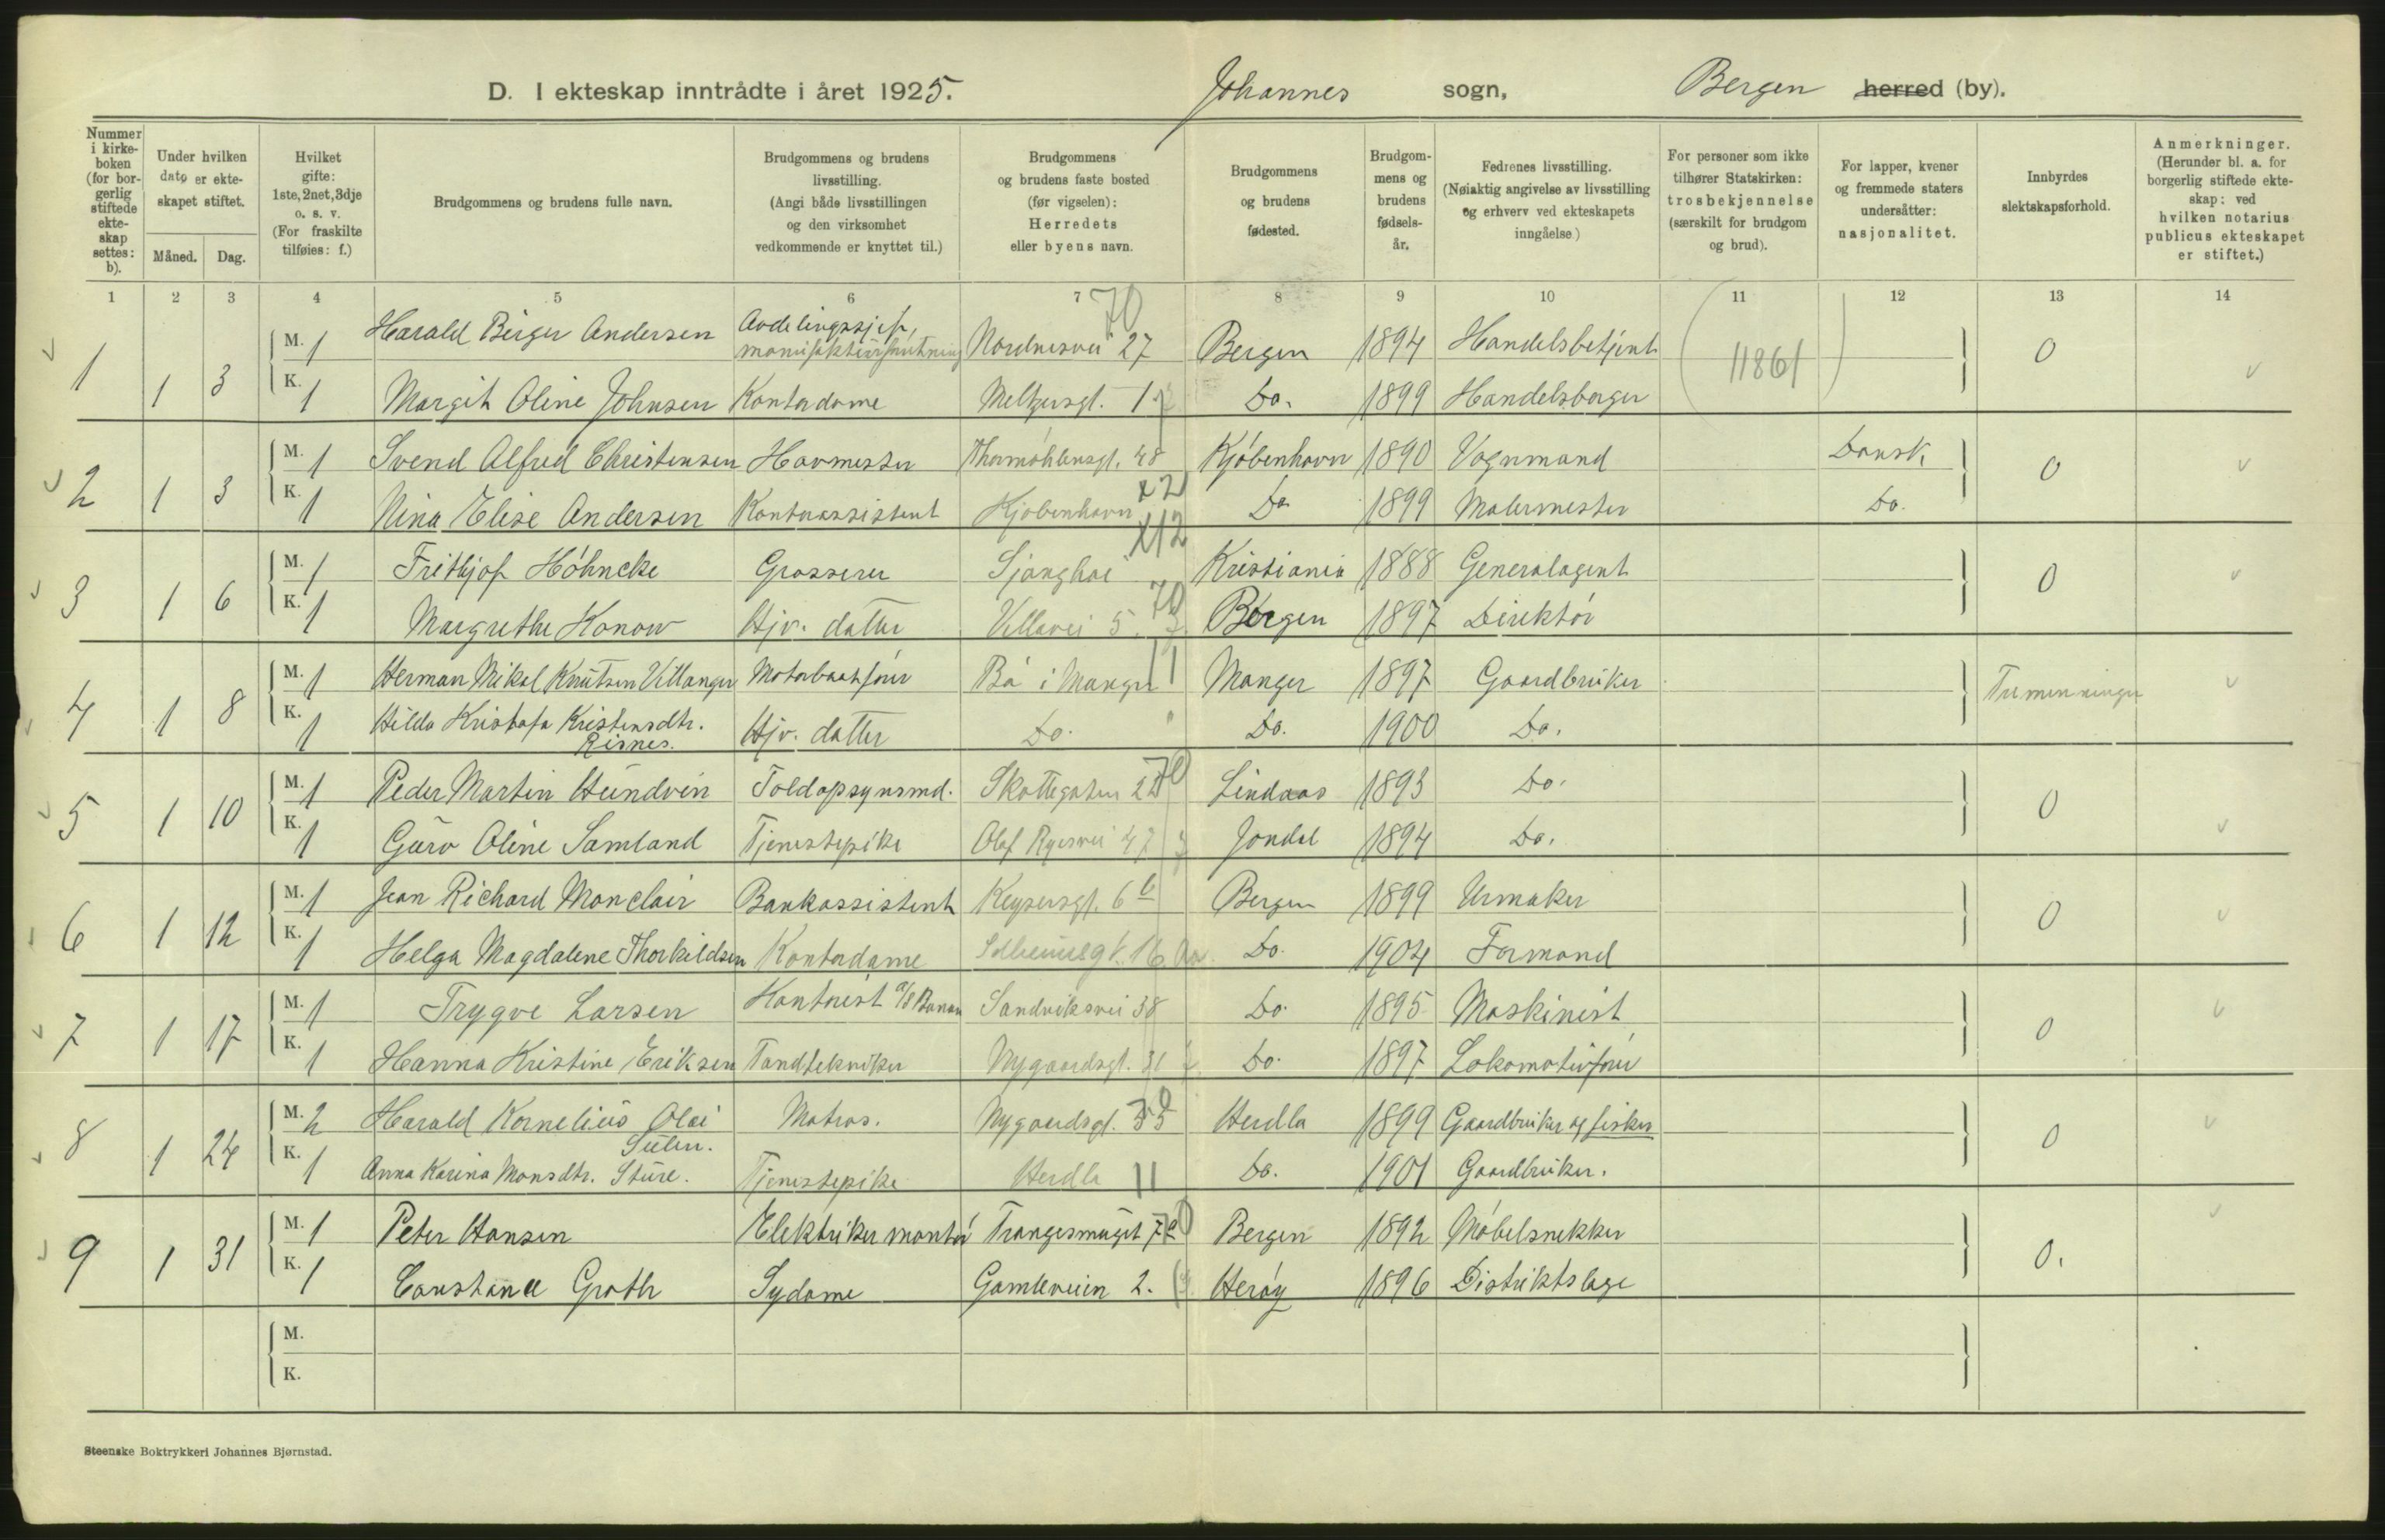 D. I ekteskap inntrådte i året 1925. Johannes sogn, Bergen herred (by).
Nummer i kirkeboken (for borgerlig stiftede ekteskap settes: b).
Under hvilken dato er ekteskapet stiftet.
Måned. Dag.
Hvilket gifte: 1ste, 2net, 3dje o. s. v. (For fraskilte tilføies: f.)
Brudgommens og brudens fulle navn.
Brudgommens og brudens livsstilling. (Angi både livsstillingen og den virksomhet vedkommende er knyttet til.)
Brudgommens og brudens faste bosted (før vigselen): Herredets eller byens navn.
Brudgommens og brudens fødested.
Brudgommens og brudens fødselsår.
Fedrenes livsstilling. (Nøiaktig angivelse av livsstilling og erhverv ved ekteskapets inngåelse.)
For personer som ikke tilhører Statskirken: trosbekjennelse (særskilt for brudgom og brud).
For lapper, kvener og fremmede staters undersåtter: nasjonalitet.
Innbyrdes slektskapsforhold.
Anmerkninger. (Herunder bl. a. for borgerlig stiftede ekteskap: ved hvilken notarius publicus ekteskapet er stiftet.)
1 2 3 4 5 6 7 8 9 10 11 12 13 14
70
1 1 3 M. 1 Harald Birger Andersen Avdelingssjef, Nordnesvei 27 Bergen 1894 Handelsbetjent (11861) 0
K. 1 Margit Oline Johnsen Kontordame Meltzersgt. Do. 1899 Handelsborger
2 1 3 M. 1 Svend Alfred Christensen Hovmester Thormøhlensgt. 48 Kjøbenhavn 1890 Vognmand Dansk 0
K. 1 Nina Elise Andersen Kontorassistent Kjøbenhavn x2 Do. 1899 Malermester Do.
x12
3 1 6 M. 1 Frithjof Höhncke Grosserer Sjanghai Kristiania 1888 Generalagent 0
K. 1 Margrethe Konow Hjv. datter Villavei 5. 70 Bergen 1897 Direktör
4 1 8 M. 1 Herman Mikal Knutsen Villanger Motorbaatförer Bö i Manger 11 Manger 1897 Gaardbruker Tremenninger
K. 1 Hilda Kristofa Kristensdtr. Risnes. Hjv. datter Do. " Do. 1900 Do.
5 1 10 M. 1 Peder Martin Hundvin Toldopsynsmd. Skottegaten 22 70 Lindaas 1893 Do. 0
K. 1 Guro Oline Samland Tjenestepike Olaf Ryesvei 47 Jondal 1894 Do.
6 1 12 M. 1 Jean Richard Monclair Bankassistent Keysersgt. 6 b Bergen 1899 Urmaker 0
K. 1 Helga Magdalene Thorkildsen Kontordame Solheimsgt. 16 Do. 1904 Formand
7 1 17 M. 1 Trygve Larsen Kontorist a/s Banan Sandviksvei 38 Do. 1895 Maskinist 0
K. 1 Hanna Kristine Eriksen Tandtekniker Nygaardsgt. 31 Do. 1897 Lokomotivförer
8 1 24 M. 2 Harald Kornelius Olai Matros. Nygaardsgt. Herdla 1899 Gaardbruker og fisker 0
K. 1 Anna Karina Monsdtr. Sture. Tjenestepike Herdla 11 Do. 1901 Gaardbruker.
9 1 31 M. 1 Peter Hansen Elektriker montör Trangesmuget Bergen 1892 Möbelsnekker 0.
K. 1 Constance Groth Sydame Gamleveien 2. Heröy 1896 Distriktslæge
M.
K.
Steenske Boktrykkeri Johannes Bjørnstad.